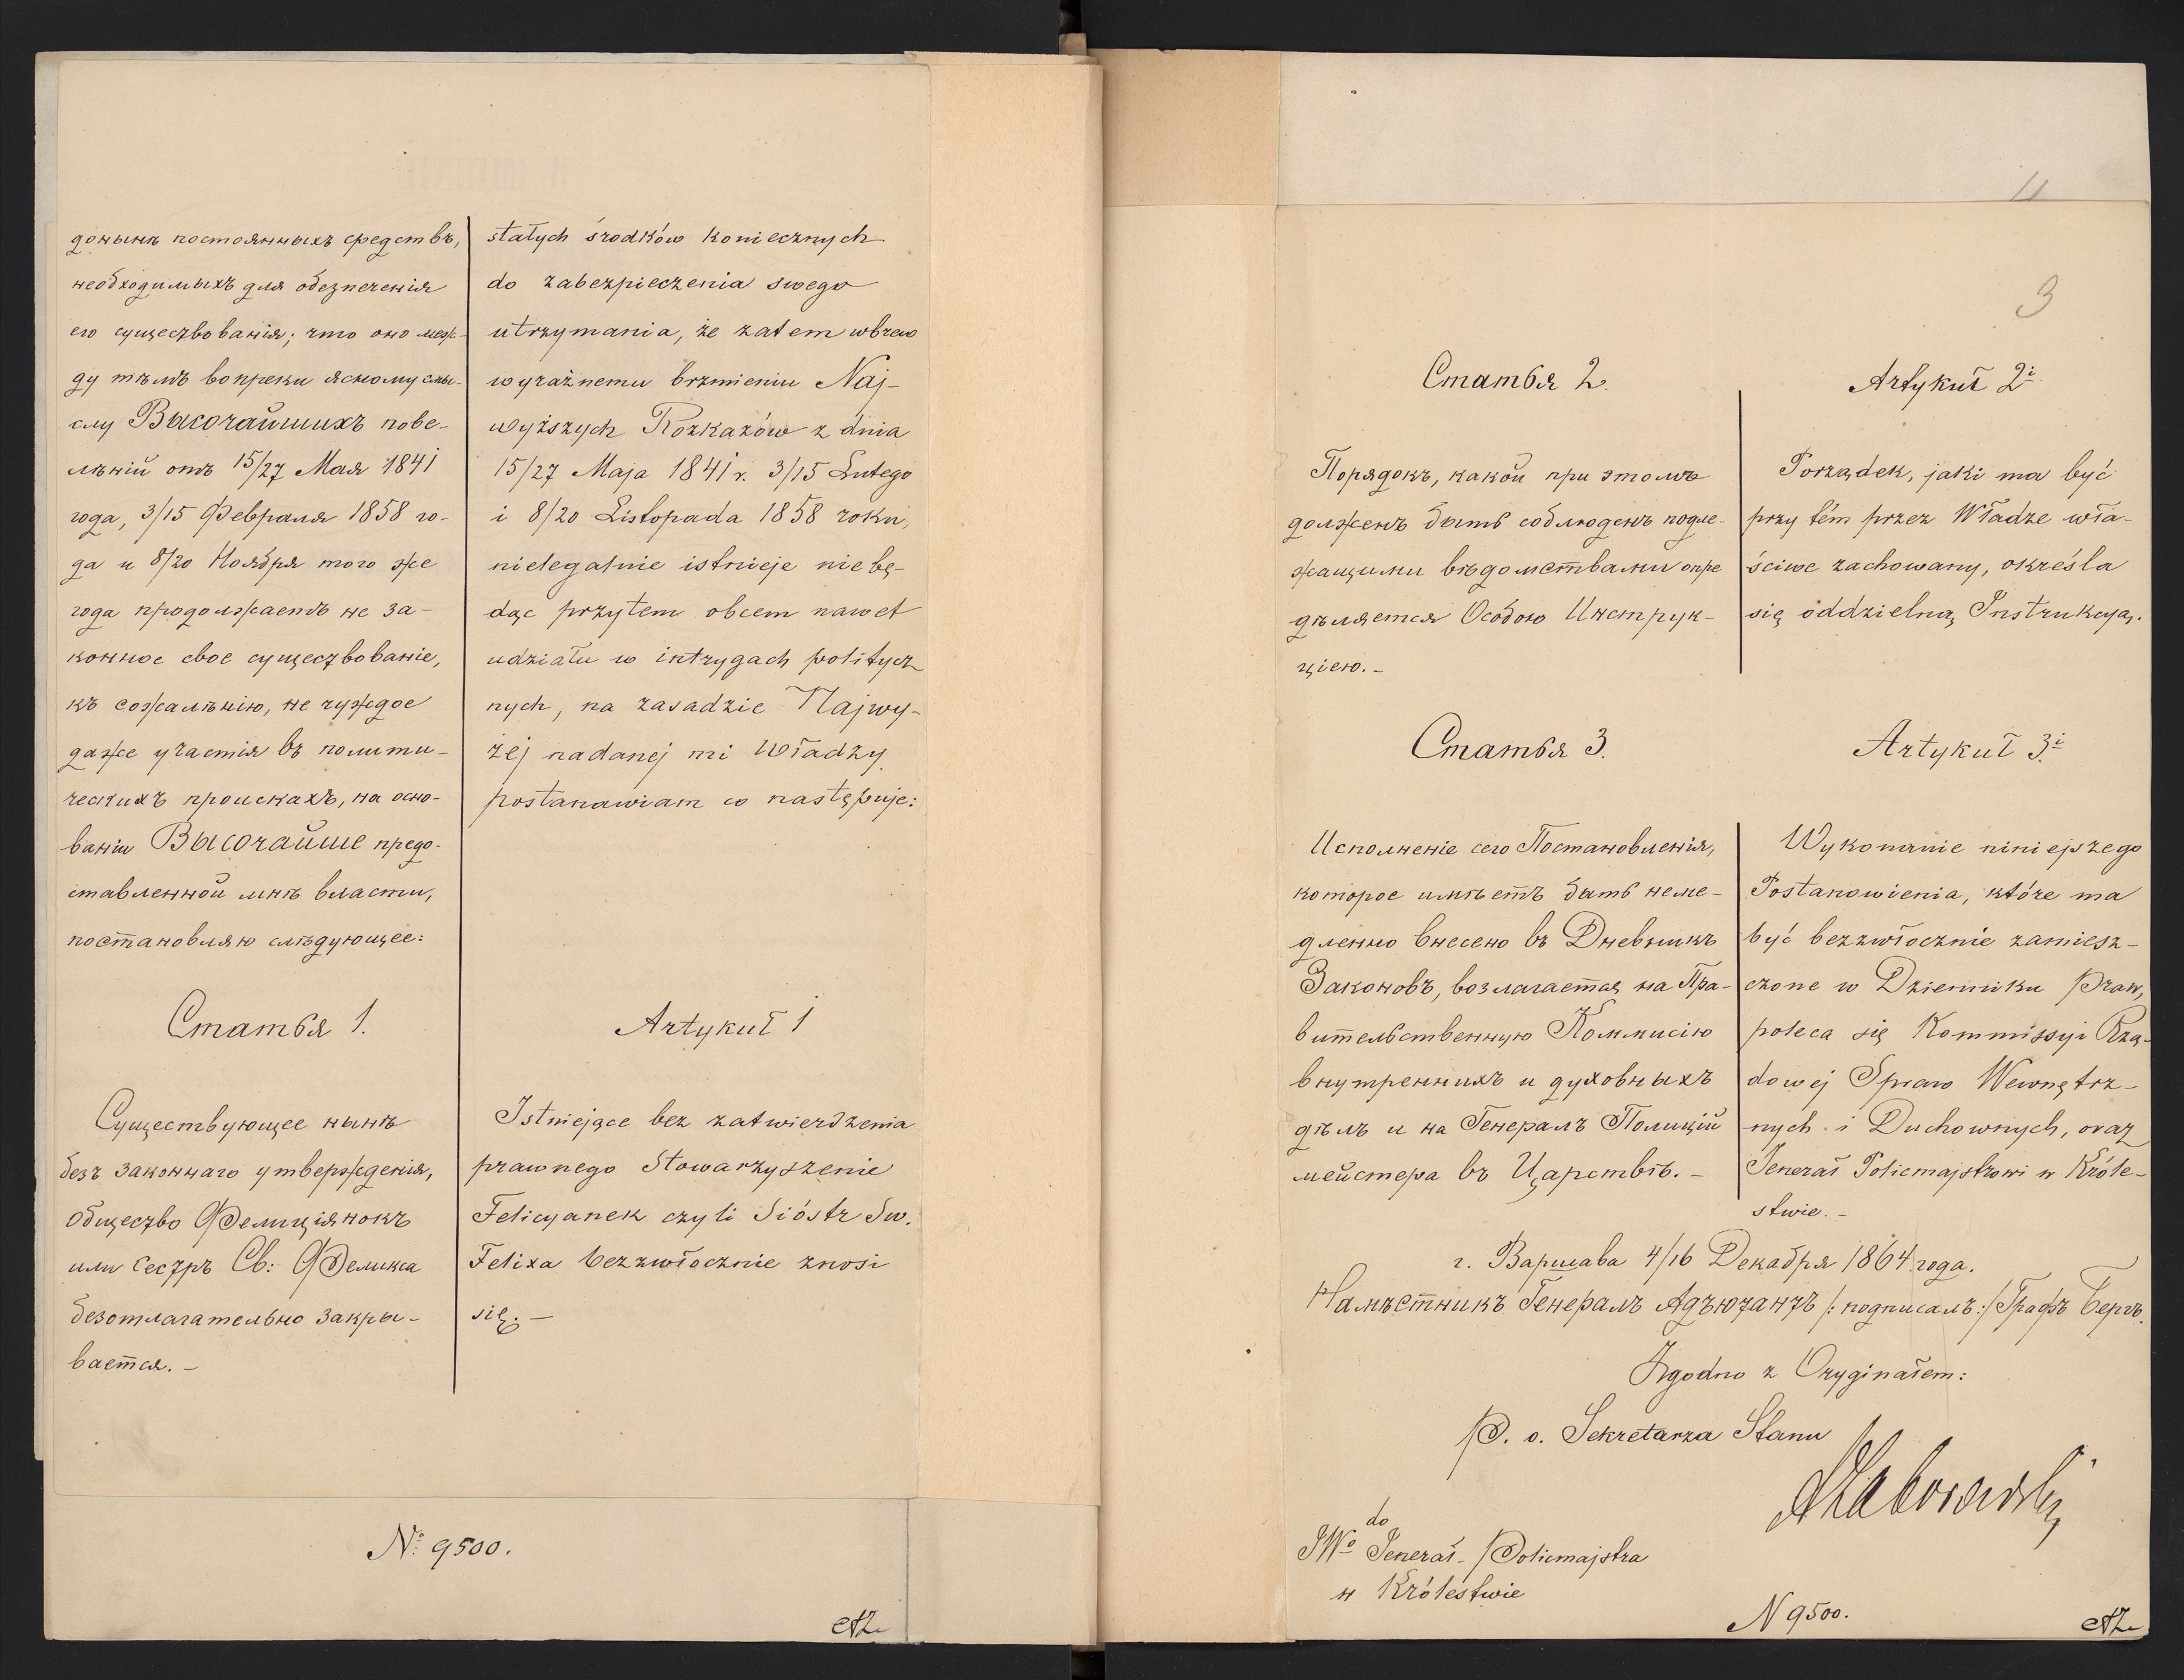 донынѣ постоянныхъ средствъ,
необходимыхъ для обезпеченія
его существованія; что оно меж-
ду тѣмъ вопреки ясному смы-
слу Высочайшихъ пове-
лѣній отъ 15/27 Мая 1841
года, 3/15 Февраля 1858 го-
да и 8/20 Ноября того же
года продолжаетъ не за-
конное свое существованіе,
къ сожалѣнію, не чуждое
даже участія въ полити-
ческихъ проискахъ, на осно-
ваніи Высочайше предо-
ставленной мнѣ власти,
постановляю слѣдующее:
Статья 1.
Существующее нынѣ
безъ законнаго утвержденія,
общество Фелиціянокъ
или Сестръ Св: Феликса
безотлагательно закры-
вается. –
stałych środków koniecznych
do zabezpieczenia swego
utrzymania, że zatem wbrew
wyraźnemu brzmieniu Naj-
wyższych Rozkazów z dnia
15/27 Maja 1841 r. 3/15 Lutego
i 8/20 Listopada 1858 roku,
nielegalnie istnieje nie bę-
dąc przytem obcem nawet
udziału w intrygach politycz
nych, na zasadzie Najwy-
żej nadanej mi Władzy
postanawiam co następuje:
Artykuł 1
Istniejące bez zatwierdzenia
prawnego Stowarzyszenie
Felicyanek czyli Sióstr Sw.
Felixa bezzwłocznie znosi
się. –
No 9500.
AZ
11
3
Статья 2.
Порядокъ, какой при этомъ
долженъ быть соблюденъ подле-
жащими вѣдомствами опре
дѣляется Особою Инструк-
ціею. –
Artykuł 2i
Porządek, jaki ma być
przy tém przez Władze wła-
ściwe zachowany, określa
się oddzielną Instrukcyą.
Статья 3.
Исполненіе сего Постановленія,
которое имѣетъ быть неме-
дленно внесено въ Дневникъ
Законовъ, возлагается на Пра-
вительственную Коммисію
внутреннихъ и духовныхъ
дѣлъ и на Генералъ Полицій
мейстера въ Царствѣ. –
Artykuł 3i
Wykonanie niniejszego
Postanowienia, które ma
być bezzwłocznie zamiesz-
czone w Dzienniku Praw,
poleca się Kommissyi Rzą-
dowej Spraw Wewnętrz-
nych i Duchownych, oraz
Jenerał Policmajstrowi w Króle-
stwie. –
г. Варшава 4/16 Декабря 1864 года.
Намѣстникъ Генералъ Адъютантъ /: подписалъ :/ Графъ Бергъ.
Zgodno z Oryginałem:
P. o. Sekretarza Stanu
AZaborowski
do
JWo Jenerał-Policmajstra
w Królestwie
N 9500.
AZ